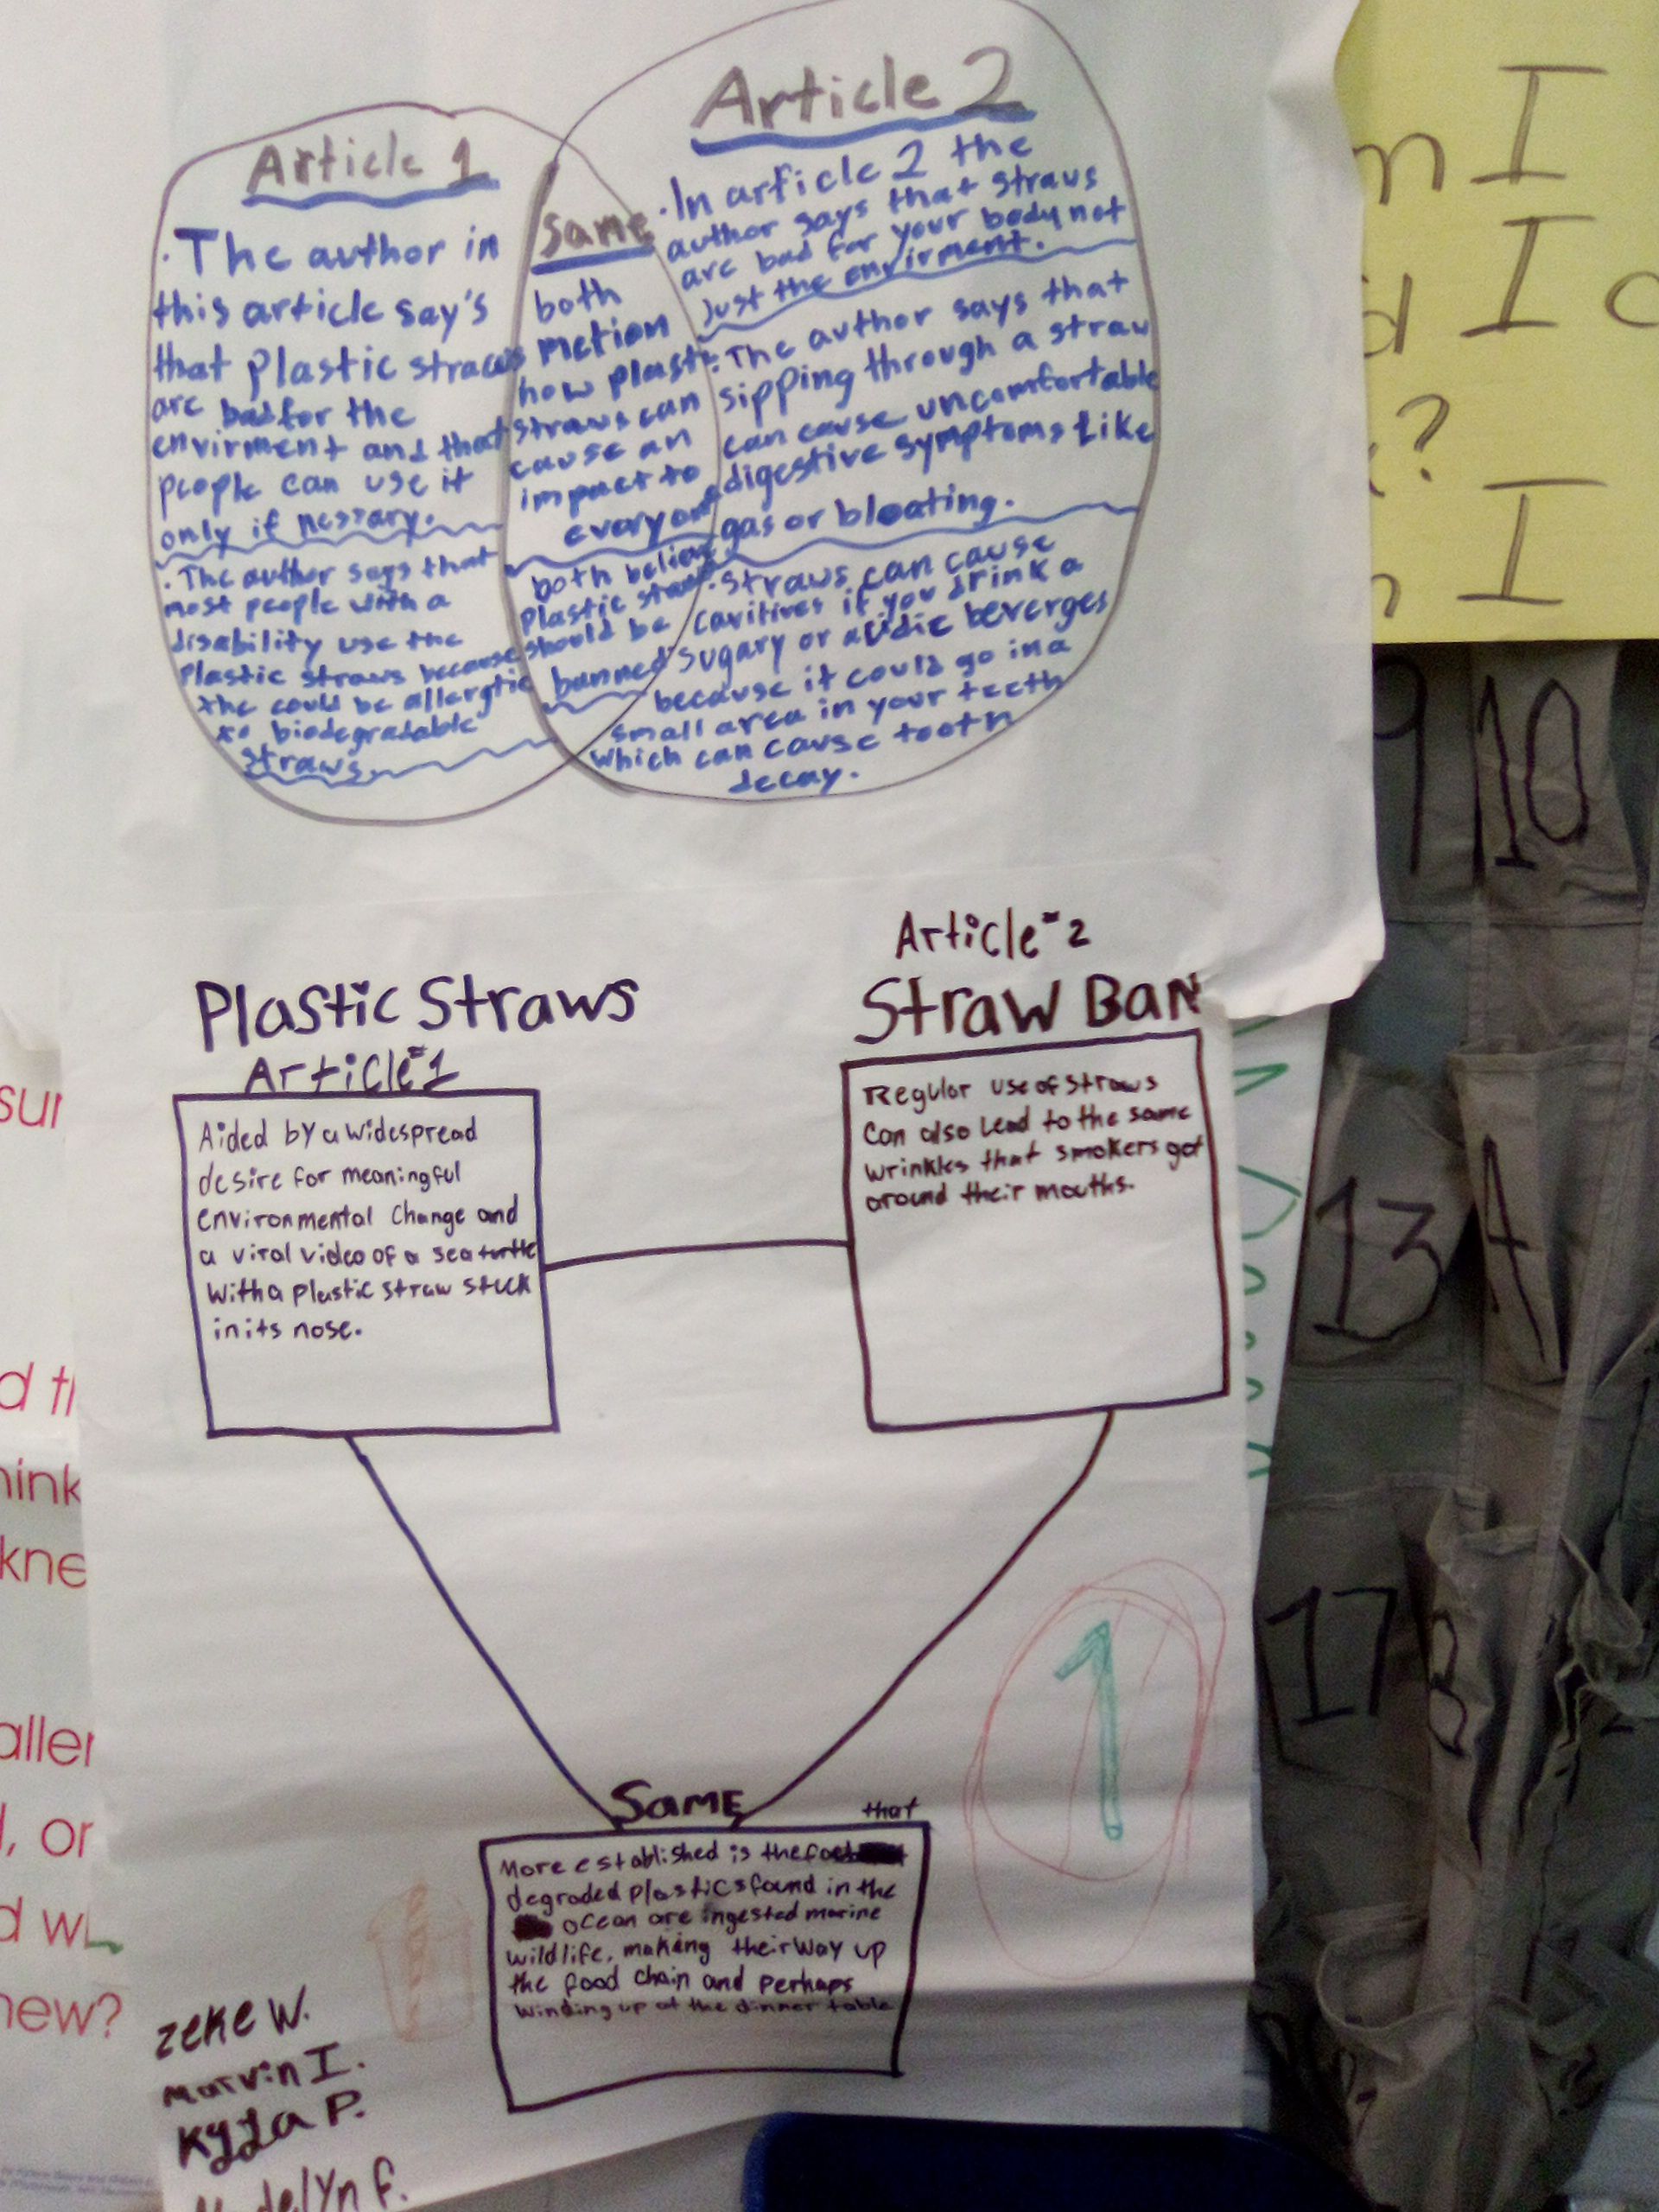 Article 1
· The author in
this article say's
that plastic straws
are bad for the
envirment and that
people can use it
only if nessary.
· The author says that
most people with a
disability use the
plastic straws because
the could be allergtic
to biodegradable
straws.
Same
both
metion
how plastic
straws can
cause an
impact to
everyone
both believe
plastic straws
should be
banned
Article 2
· In article 2 the
author says that straws
are bad for your body not
just the envirment.
· The author says that
sipping through a straw
can cause uncomfortable
digestive symptoms like
gas or bloating.
· straws can cause
cavitives if you drink a
sugary or acidic beverges
because it could go in a
small area in your teeth
which can cause tooth
decay.
Plastic Straws
Article 1
Aided by a widespread
desire for meaningful
environmental change and
a viral video of a sea turtle
with a plastic straw stuck
in its nose.
Article 2
Straw Ban
Regular use of straws
can also lead to the same
wrinkles that smokers get
around their mouths.
Same
that
More established is the fact
degraded plastics found in the
ocean are ingested marine
wildlife, making their way up
the food chain and perhaps
winding up at the dinner table
1
Zeke W.
Marvin I.
Kyla P.
F.
I
I
?
I
9
10
13
17
d
hink
kne
, or
new?